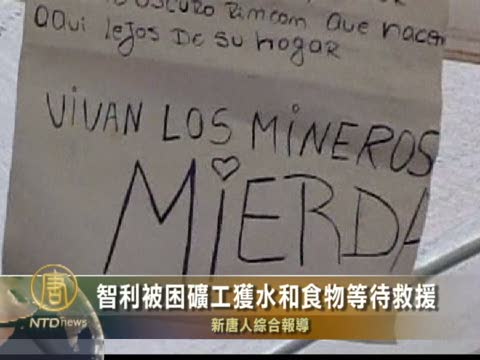 OSCURO RINCON QUE HACEN
AQUI LEJOS DE SU HOGAR
VIVAN LOS MINEROS
MIERDA
智利被困礦工獲水和食物等待救援
唐
NTDnews
新唐人綜合報導